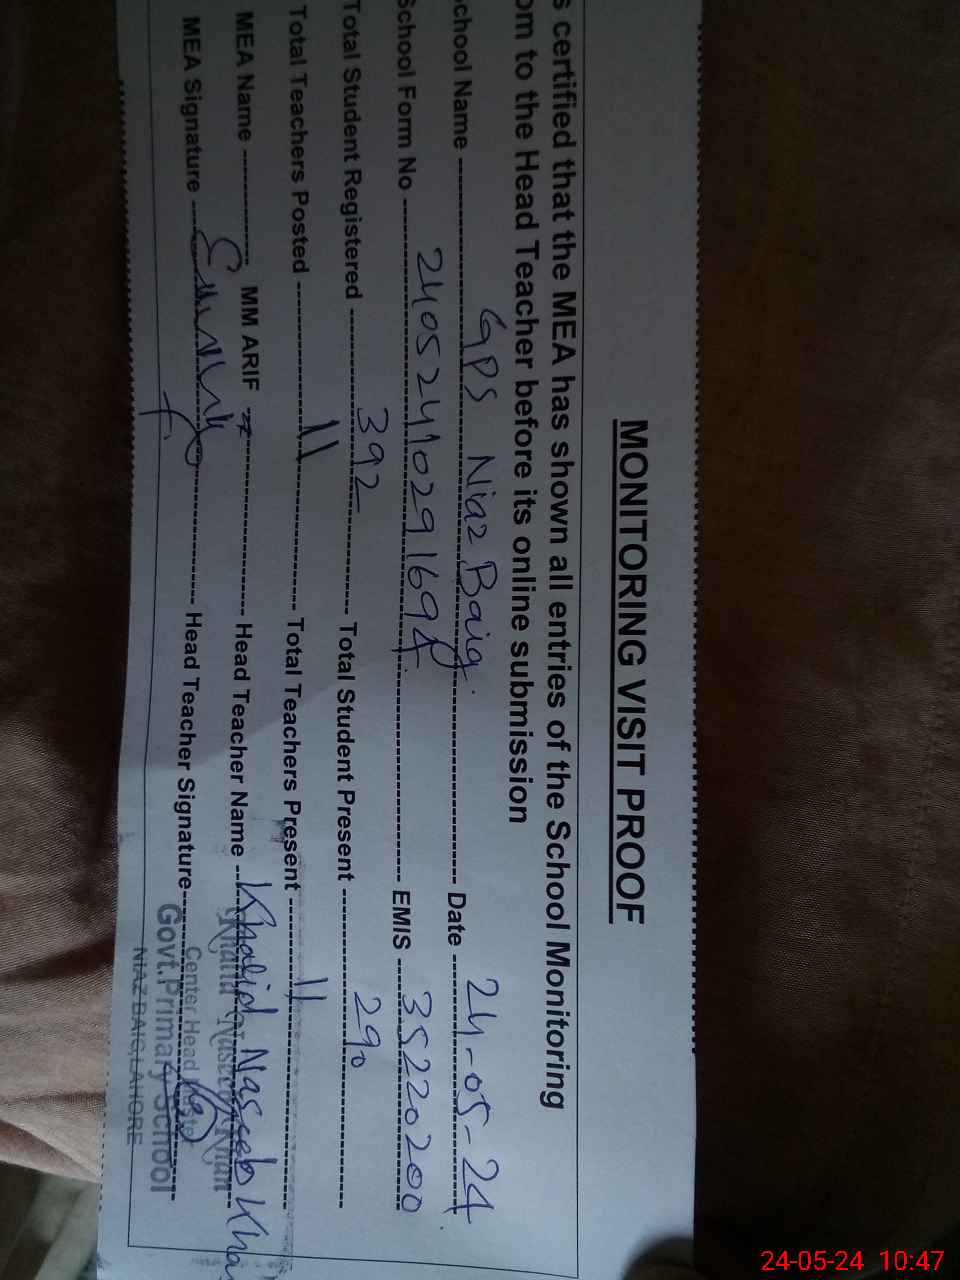 MONITORING VISIT PROOF
s certified that the MEA has shown all entries of the School Monitoring
om to the Head Teacher before its online submission
chool Name GPS Niaz Baig. Date 24-05-24.
School Form No 24052410291694. EMIS 35220200
Total Student Registered 392 Total Student Present 290
Total Teachers Posted 11 Total Teachers Present 11
MEA Name MM ARIF Head Teacher Name Khalid Naseeb Kha
MEA Signature Head Teacher Signature
Khalid Naseeb Khan
Center Head Master
Govt.Primary School
NIAZ BAIG, LAHORE
24-05-24 10:47